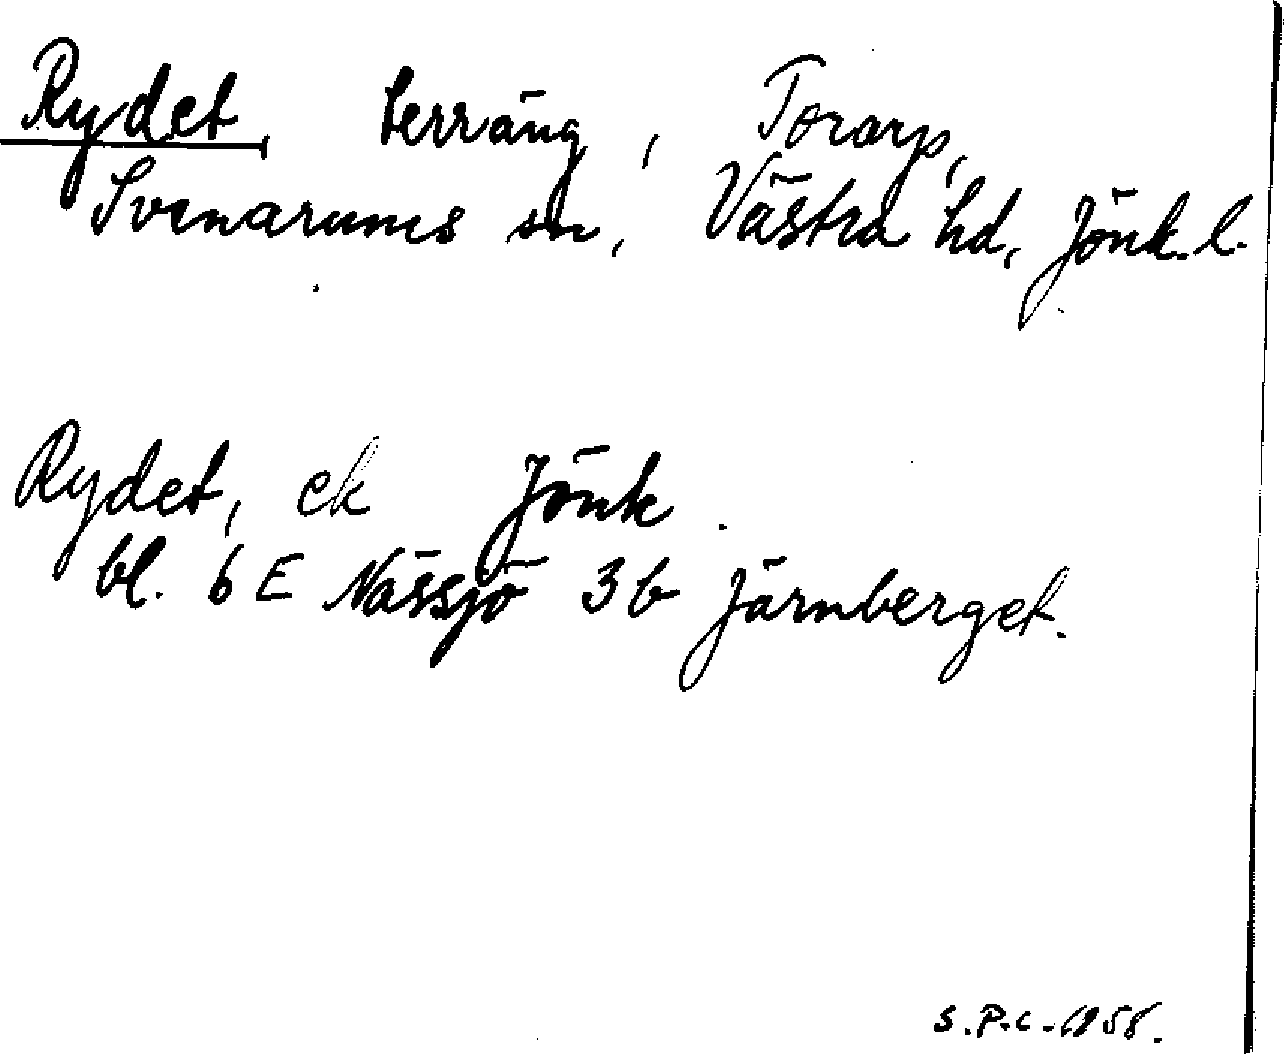 Rydet, terräng, Torarp,
Svenarums sn, Västra hd, Jönk. l.
Rydet, ek Jönk.
bl. 6 E Nässjö 3 b Järnberget.
S.P.C. 1958.